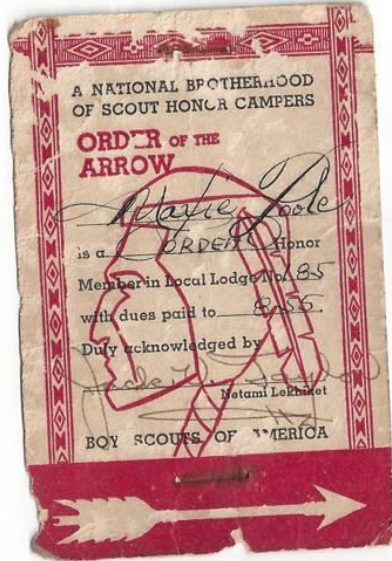 A NATIONAL BROTHERHOOD
OF SCOUT HONOR CAMPERS
ORDER OF THE
ARROW
Poole
is a ORDEAL Honor
Member in Local Lodge No. 185
with dues paid to 8-55.
Duly acknowledged by
Jack
Netami Lekhiket
BOY SCOUTS OF AMERICA